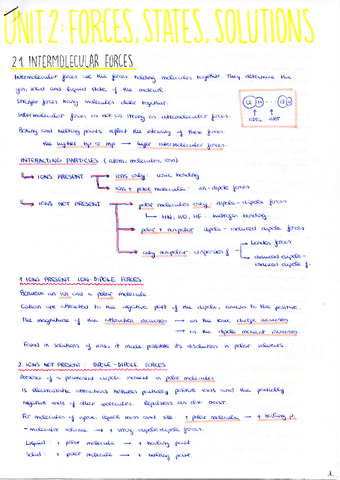 UNIT 2: FORCES, STATES, SOLUTIONS
2.1. INTERMOLECULAR FORCES
Intermolecular forces are the forces holding molecules together. They determine the
gas, solid and liquid state of the molecule.
Stronger forces bring molecules closer together.
Intermolecular forces is not as strong as intramolecular forces.
Boiling and melting points reflect the intensity of these forces.
the higher bp or mp → higher intermolecular forces.
INTERACTING PARTICLES (atoms, molecules, ions)
IONS PRESENT
ions only: ionic bonding
ions + polar molecules: ion-dipole forces
IONS NOT PRESENT
polar molecules only: dipole-dipole forces
hydrogen bonding
polar + nonpolar: dipole-induced dipole forces
only nonpolar: dispersion f
London forces
induced dipole-
induced dipole f.
1. IONS PRESENT: ION-DIPOLE FORCES
Between an ion and a polar molecule.
Cations are attracted to the negative part of the dipole, anions to the positive.
The magnitude of the attraction increases → as the ionic charge increases
→ as the dipole moment increases
Found in solutions of ions, it makes possible its dissolution in polar solvents.
2. IONS NOT PRESENT: DIPOLE-DIPOLE FORCES
Presence of a permanent dipole moment in polar molecules
Is electrostatic attractions between partially positive ends and the partially
negative ends of other molecules. Repulsions can also occur.
For molecules of approx. equal mass and size: + polar molecule → + boiling pt.
- molecular volume → + strong dipole-dipole forces.
Liquid: + polar molecule → + boiling point
Solid: + polar molecule → + melting point.
1.